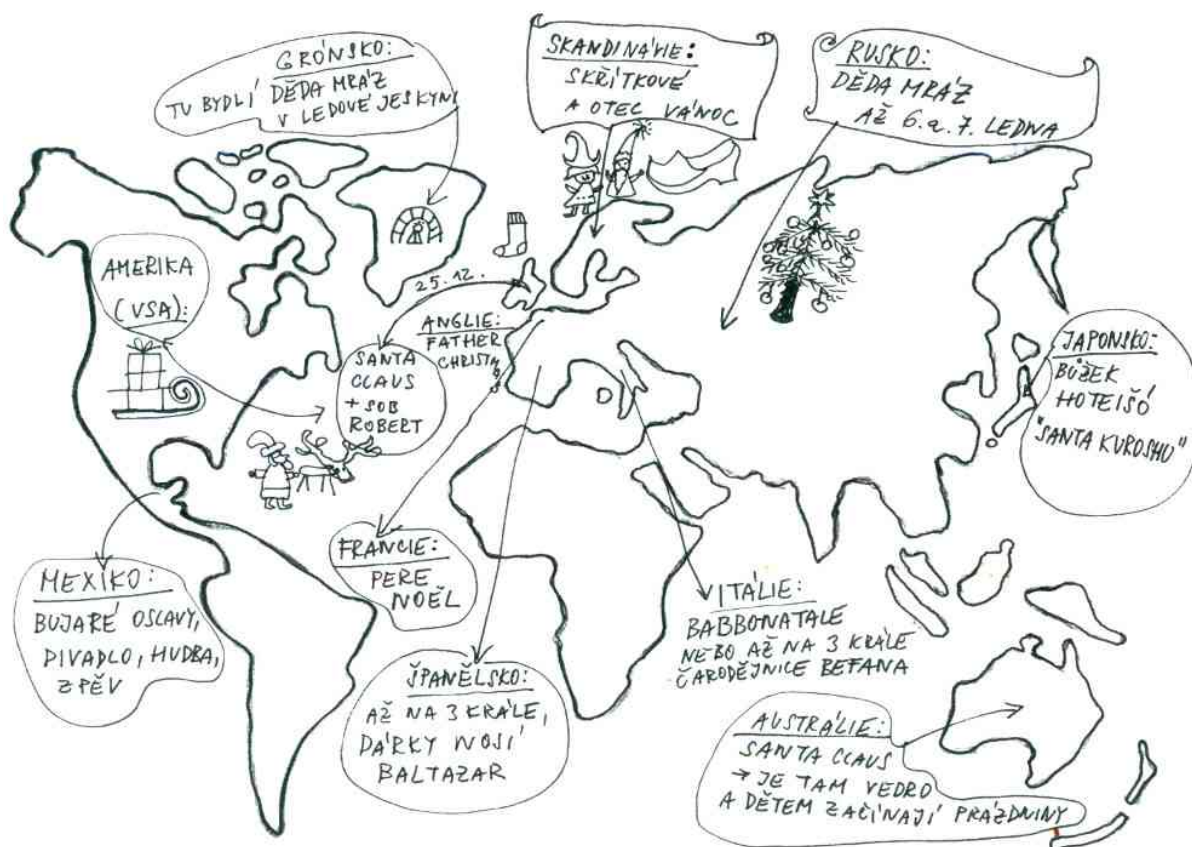 GRÓNSKO:
TU BYDLÍ DĚDA MRÁZ
V LEDOVÉ JESKYNI
SKANDINÁVIE:
SKŘÍTKOVÉ
A OTEC VÁNOC
RUSKO:
DĚDA MRÁZ
AŽ 6. a 7. LEDNA
AMERIKA
(USA):
25.12.
ANGLIE:
FATHER
CHRISTMAS
SANTA
CLAUS
+ SOB
ROBERT
JAPONSKO:
BŮŽEK
HOTEIŠÓ
"SANTA KUROSHU"
MEXIKO:
BUJARÉ OSLAVY,
DIVADLO, HUDBA,
ZPĚV
FRANCIE:
PERE
NOËL
ŠPANĚLSKO:
AŽ NA 3 KRÁLE,
DÁRKY NOSÍ
BALTAZAR
ITÁLIE:
BABBONATALE
NEBO AŽ NA 3 KRÁLE
ČARODĚJNICE BEFANA
AUSTRÁLIE:
SANTA CLAUS
→ JE TAM VEDRO
A DĚTEM ZAČÍNAJÍ PRÁZDNINY